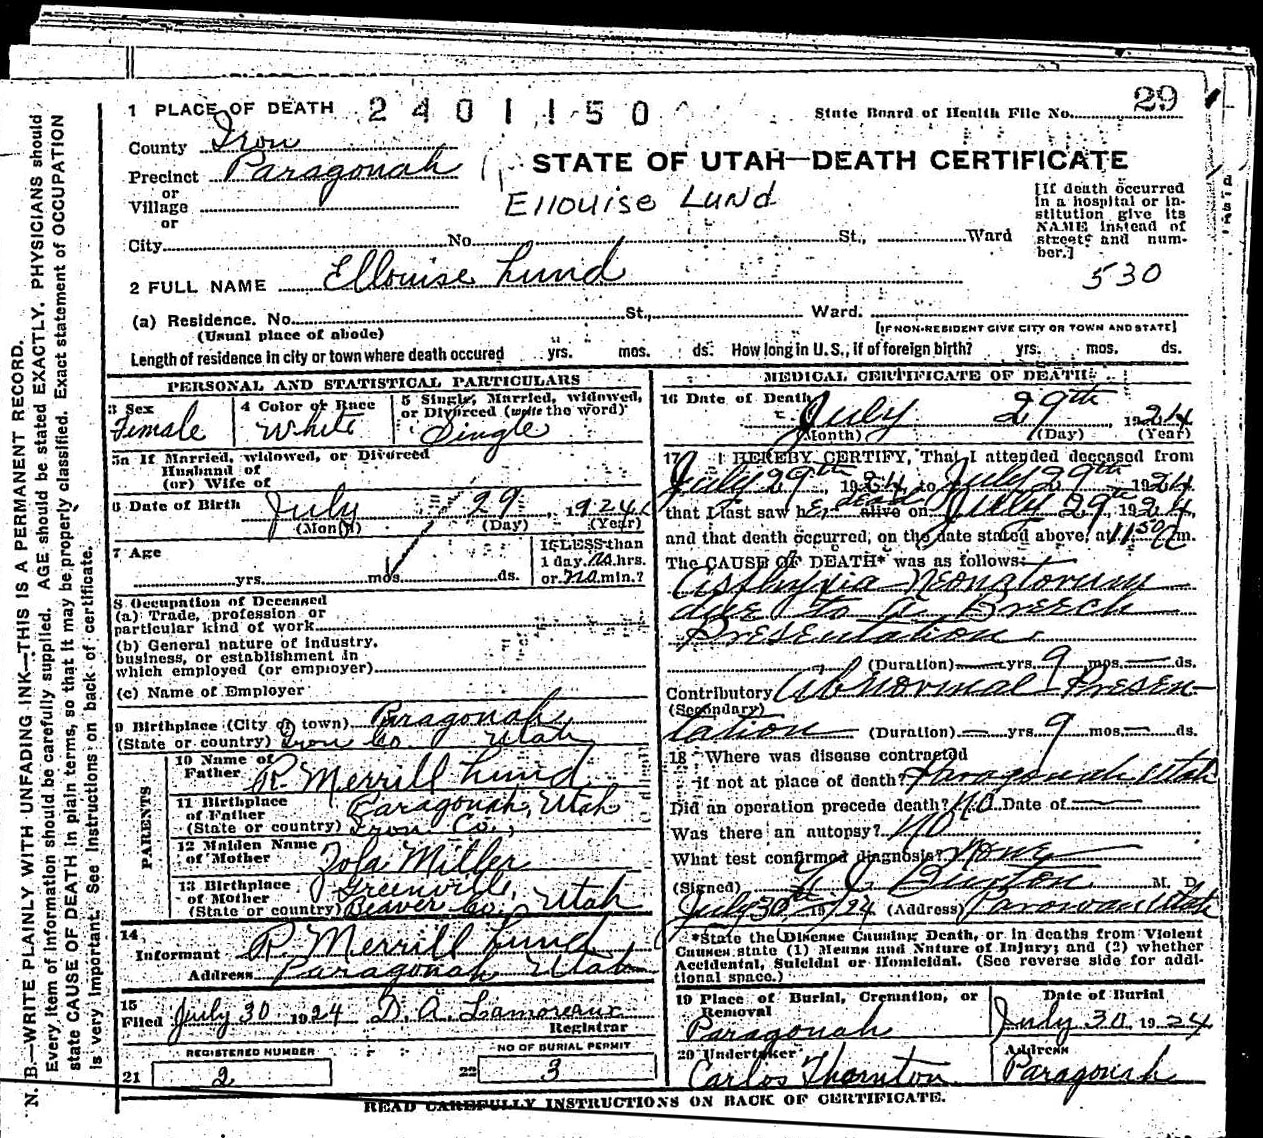 1 PLACE OF DEATH 2401150 State Board of Health File No. 29
County Iron
Precinct Paragonah
STATE OF UTAH—DEATH CERTIFICATE
or
Village
Ellouise Lund
or
City No. St., Ward
[If death occurred in a hospital or institution give its NAME instead of street and number.]
530
2 FULL NAME Ellouise Lund
(a) Residence. No. St., Ward.
(Usual place of abode) [IF NON-RESIDENT GIVE CITY OR TOWN AND STATE]
Length of residence in city or town where death occured yrs. mos. ds. How long in U. S., if of foreign birth? yrs. mos. ds.
PERSONAL AND STATISTICAL PARTICULARS
3 Sex Female
4 Color or Race White
5 Single, Married, widowed, or Divorced (write the word) Single
5a If Married, widowed, or Divorced
Husband of
(or) Wife of
6 Date of Birth July 29, 1924
(Month) (Day) (Year)
7 Age
yrs. mos. ds.
If LESS than
1 day, no hrs.
or no min.?
8 Occupation of Deceased
(a) Trade, profession or
particular kind of work
(b) General nature of industry,
business, or establishment in
which employed (or employer)
(c) Name of Employer
9 Birthplace (City or town) Paragonah
(State or country) Iron Co. Utah
PARENTS
10 Name of
Father R. Merrill Lund
11 Birthplace
of Father Paragonah, Utah
(State or country) Iron Co.,
12 Maiden Name
of Mother Zola Miller
13 Birthplace
of Mother Greenville,
(State or country) Beaver Co., Utah
14
Informant R. Merrill Lund
Address Paragonah Utah
15
Filed July 30 1924 D. A. Lamoreaux
Registrar
REGISTERED NUMBER NO OF BURIAL PERMIT
21 2 22 3
MEDICAL CERTIFICATE OF DEATH
16 Date of Death
July 29th, 1924
(Month) (Day) (Year)
17 I HEREBY CERTIFY, That I attended deceased from
July 29th, 1924, to July 29th 1924
that I last saw her dead alive on July 29th, 1924,
and that death occurred, on the date stated above, at 11:50 a m.
The CAUSE OF DEATH* was as follows:
Asphyxia Neonatorum
due to a Breech
Presentation.
(Duration) — yrs. 9 mos. — ds.
Contributory Abnormal Presen-
(Secondary)
tation (Duration) — yrs. 9 mos. — ds.
18 Where was disease contracted
if not at place of death? Paragonah Utah
Did an operation precede death? No Date of —
Was there an autopsy? No
What test confirmed diagnosis? None
(Signed) Burton M. D.
July 30th 1924 (Address) Parowan Utah
*State the Disease Causing Death, or in deaths from Violent
Causes state (1) Means and Nature of Injury; and (2) whether
Accidental, Suicidal or Homicidal. (See reverse side for addi-
tional space.)
19 Place of Burial, Cremation, or Removal
Paragonah
Date of Burial
July 30, 1924
20 Undertaker
Carlos Thornton
Address
Paragonah
READ CAREFULLY INSTRUCTIONS ON BACK OF CERTIFICATE.
N. B.—WRITE PLAINLY WITH UNFADING INK—THIS IS A PERMANENT RECORD.
Every item of information should be carefully supplied. AGE should be stated EXACTLY. PHYSICIANS should
state CAUSE OF DEATH in plain terms, so that it may be properly classified. Exact statement of OCCUPATION
is very important. See Instructions on back of certificate.